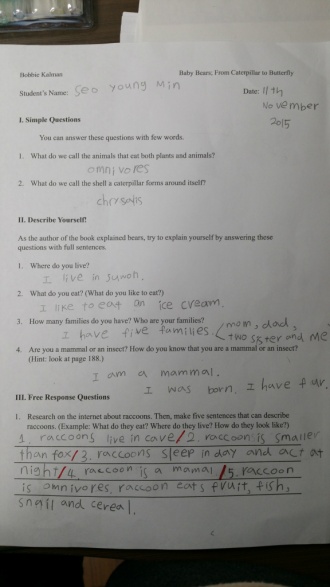 Bobbie Kalman Baby Bears, From Caterpillar to Butterfly
Student's Name: Seo young Min Date: 11th
November
2015
I. Simple Questions
You can answer these questions with few words.
1. What do we call the animals that eat both plants and animals?
omnivores
2. What do we call the shell a caterpillar forms around itself?
chrysalis
II. Describe Yourself!
As the author of the book explained bears, try to explain yourself by answering these
questions with full sentences.
1. Where do you live?
I live in suwon.
2. What do you eat? (What do you like to eat?)
I like to eat an ice cream.
3. How many families do you have? Who are your families?
I have five families (mom, dad,
two sister and me
4. Are you a mammal or an insect? How do you know that you are a mammal or an insect?
(Hint: look at page 188.)
I am a mammal.
I was born. I have fur.
III. Free Response Questions
1. Research on the internet about raccoons. Then, make five sentences that can describe
raccoons. (Example: What do they eat? Where do they live? How do they look like?)
1. raccoons live in cave/2. raccoon is smaller
than fox/3. raccoons sleep in day and act at
night/4. raccoon is a mamal/5. raccoon
is omnivores, raccoon eats fruit, fish,
snail and cereal.